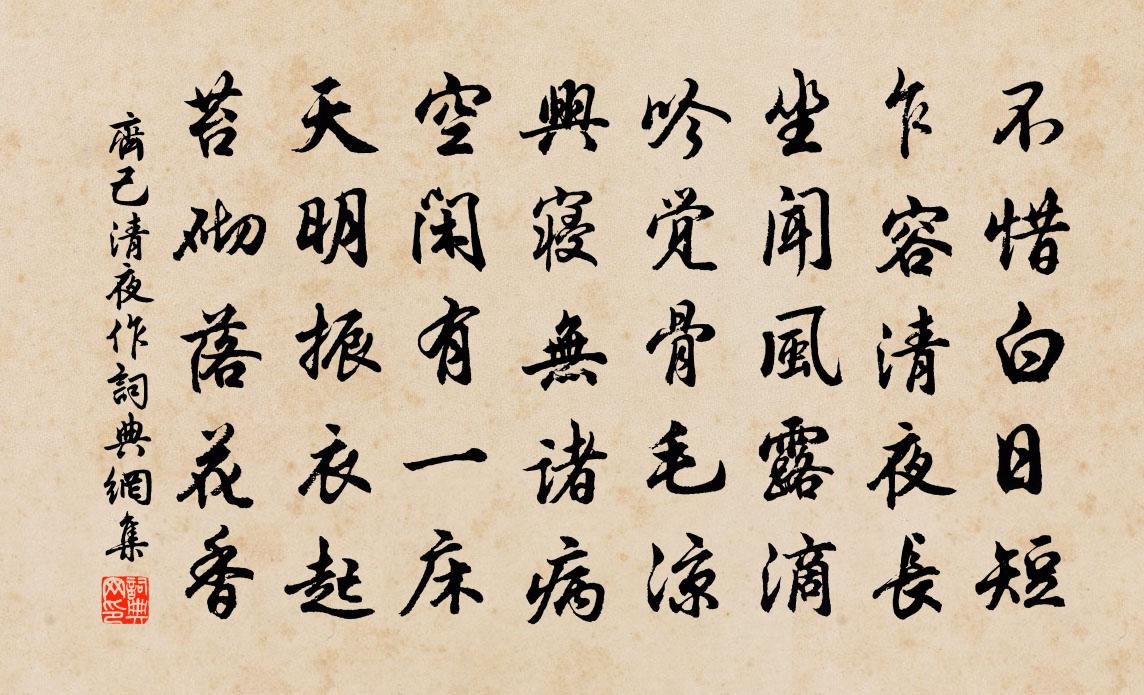 不惜白日短
乍容清夜長
坐聞風露滴
吟觉骨毛凉
興寝無諸病
空閑有一床
天明振衣起
苔砌落花香
齊己清夜作詞典網集
詞典網印